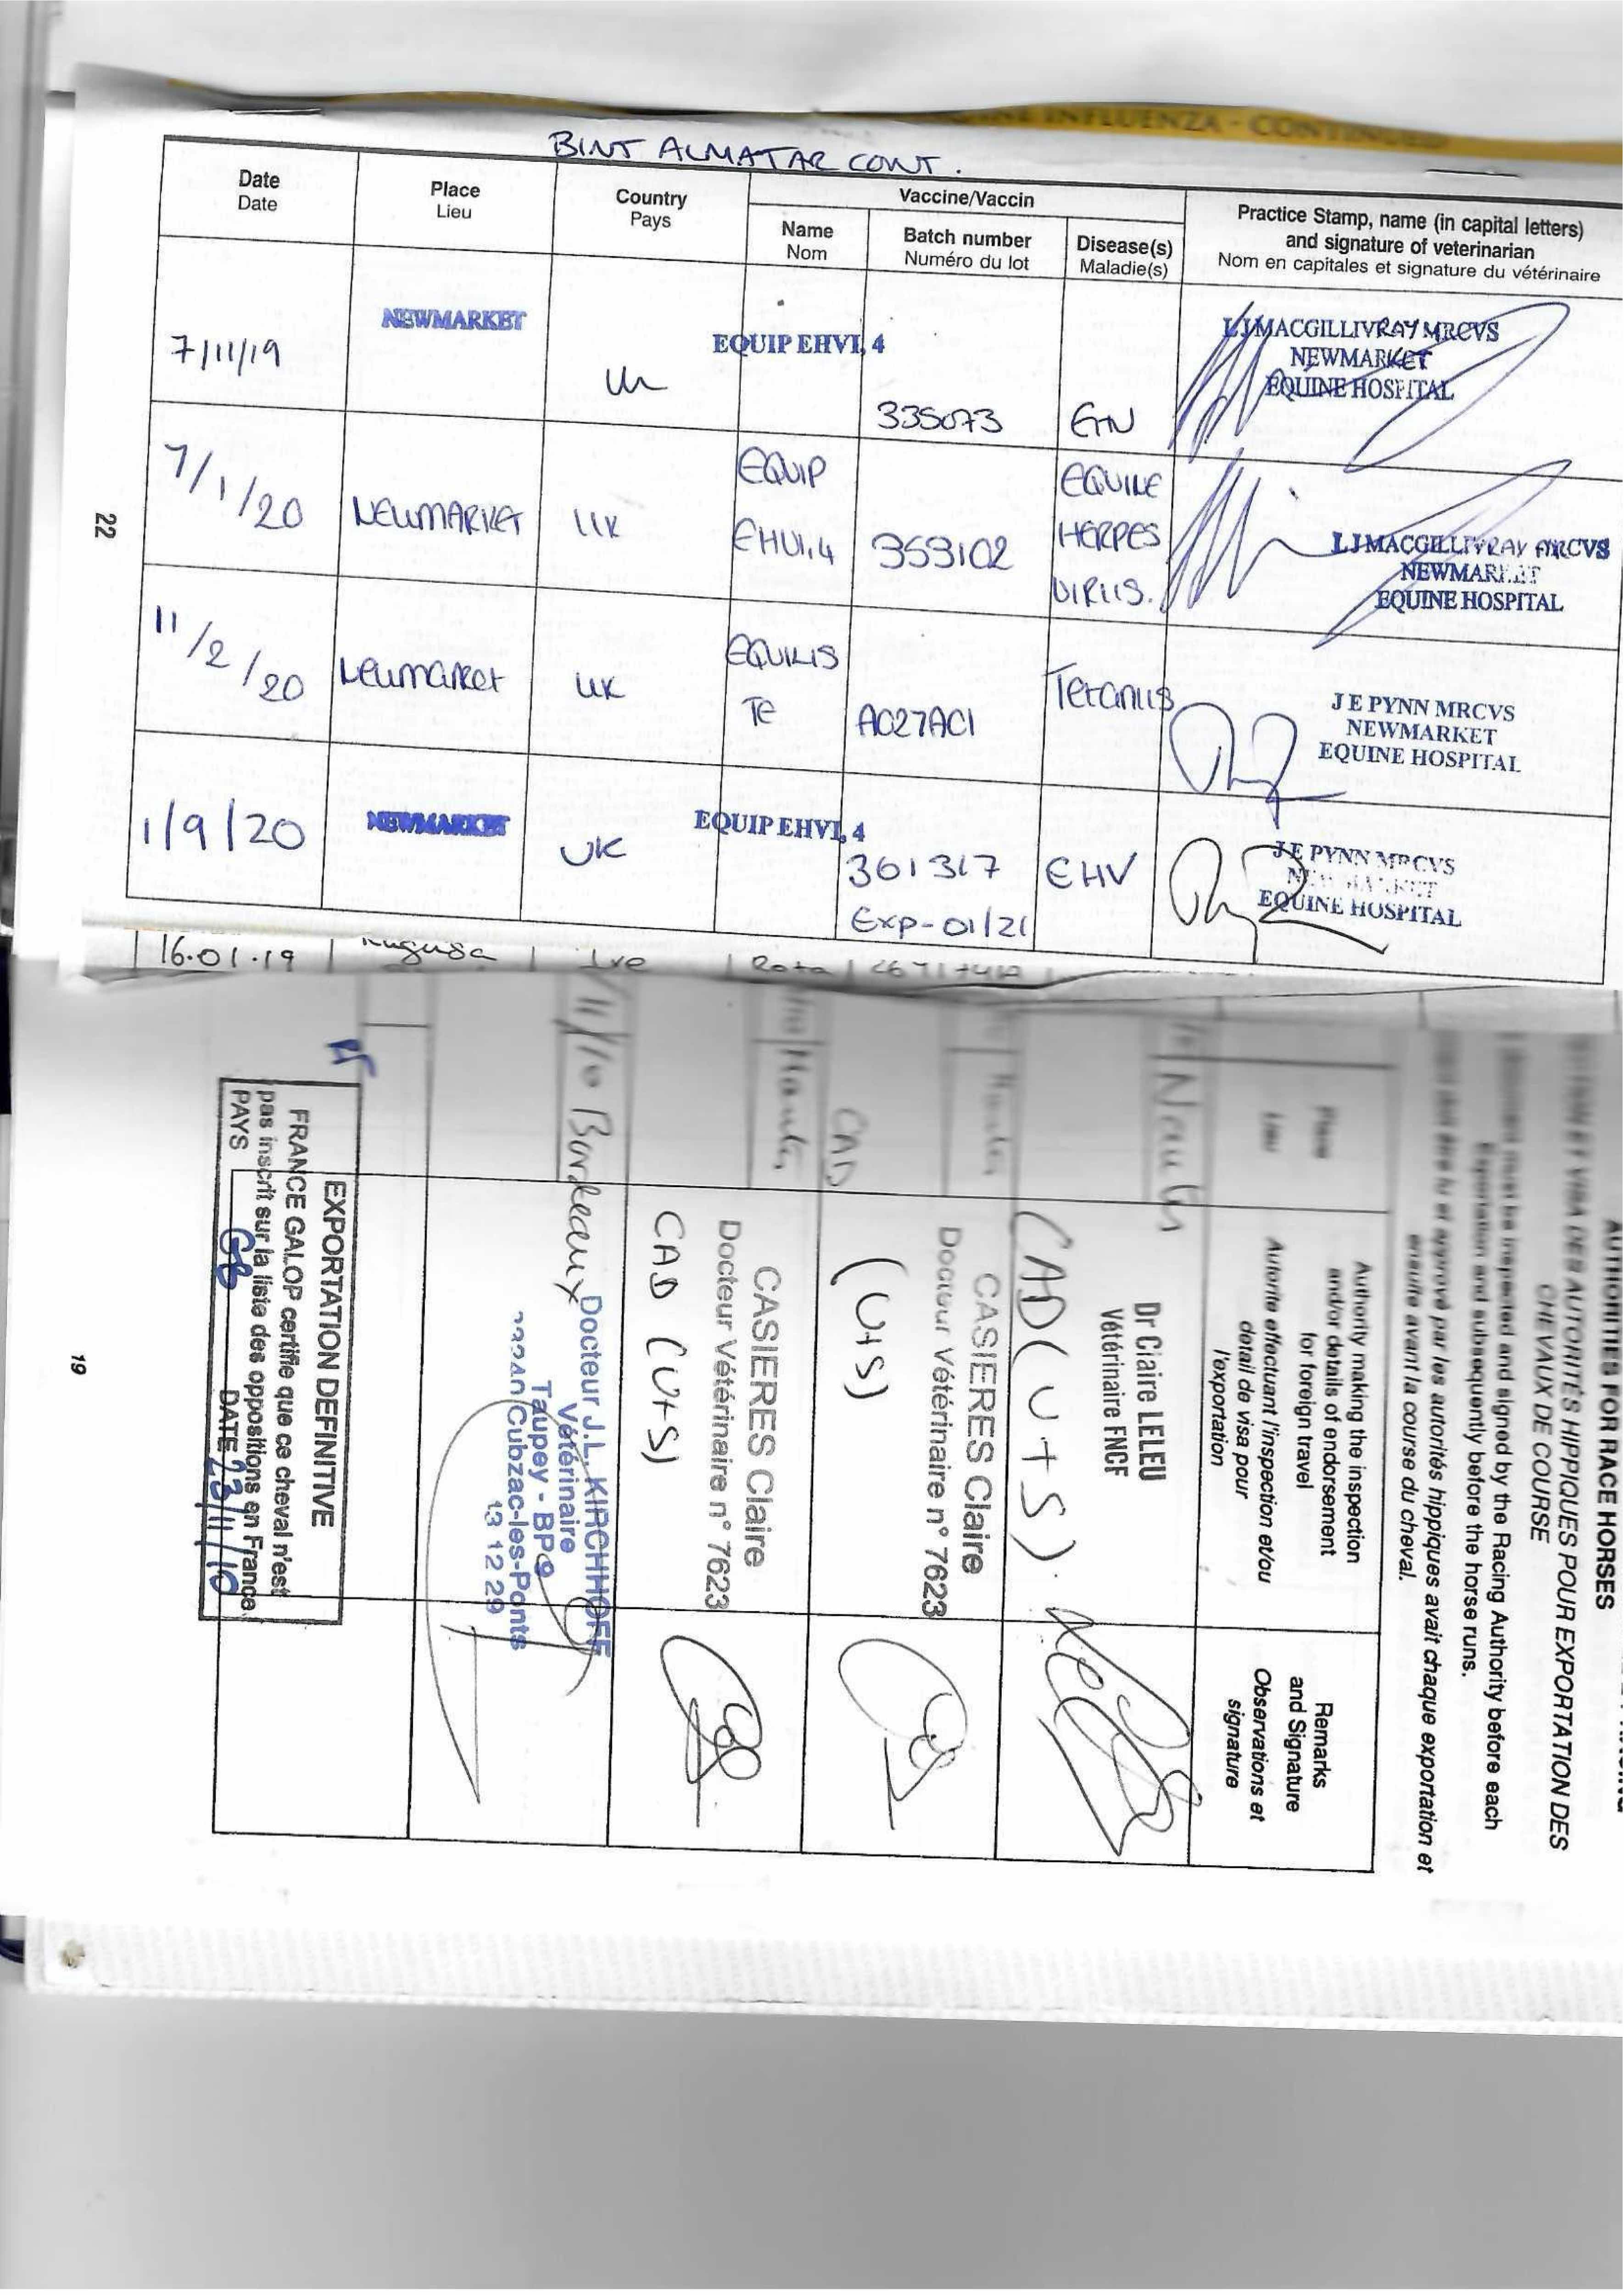 INFLUENZA - CONTINUED
BINT ALMATAR CONT.
Date
Date
Place
Lieu
Country
Pays
Vaccine/Vaccin
Name
Nom
Batch number
Numéro du lot
Disease(s)
Maladie(s)
Practice Stamp, name (in capital letters)
and signature of veterinarian
Nom en capitales et signature du vétérinaire
7/11/19
NEWMARKET
UK
EQUIP EHV1,4
335073
LJMACGILLIVRAY MRCVS
NEWMARKET
EQUINE HOSPITAL
7/1/20
NEWMARKET
UK
EQUIP
EHV1,4
353102
EQUINE
HERPES
VIRUS.
LJMACGILLIVRAY MRCVS
NEWMARKET
EQUINE HOSPITAL
11/2/20
Newmarket
UK
EQUILIS
Te
AC27AC1
Tetanus
J E PYNN MRCVS
NEWMARKET
EQUINE HOSPITAL
1/9/20
NEWMARKET
UK
EQUIP EHV1,4
361317
Exp-01/21
EHV
J E PYNN MRCVS
NEWMARKET
EQUINE HOSPITAL
22
16.01.19
Ire
Rota
AUTHORITIES FOR RACE HORSES
VISA DES AUTORITÉS HIPPIQUES POUR EXPORTATION DES
CHEVAUX DE COURSE
must be inspected and signed by the Racing Authority before each
Exportation and subsequently before the horse runs.
approuvé par les autorités hippiques avait chaque exportation et
ensuite avant la course du cheval.
Place
Lieu
Authority making the inspection
and/or details of endorsement
for foreign travel
Autorite effectuant l'inspection et/ou
detail de visa pour
l'exportation
Remarks
and Signature
Observations et
signature
Dr Claire LELEU
Vétérinaire FNCF
CAD (U+S).
CASIERES Claire
Docteur Vétérinaire n° 7623
CAD (U+S)
CASIERES Claire
Docteur Vétérinaire n° 7623
CAD (U+S)
11/10 Bordeaux
Docteur J.L. KIRCHHOFF
Vétérinaire
Taupey - BP 9
Cubzac-les-Ponts
13 12 29
EXPORTATION DEFINITIVE
FRANCE GALOP certifie que ce cheval n'est
pas inscrit sur la liste des oppositions en France
PAYS GB DATE 23/11/10
19